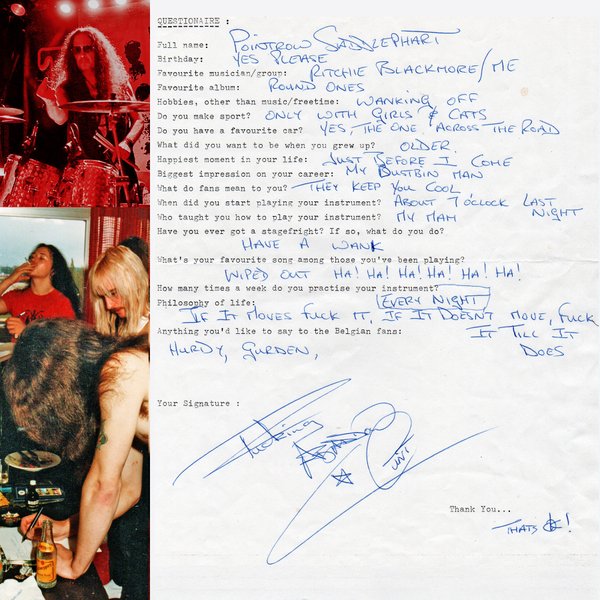 QUESTIONAIRE :
Full name: POINTROW SADDLEPHART
Birthday: YES PLEASE
Favourite musician/group: RITCHIE BLACKMORE/ME
Favourite album: ROUND ONES
Hobbies, other than music/freetime: WANKING OFF
Do you make sport? ONLY WITH GIRLS & CATS
Do you have a favourite car? YES, THE ONE ACROSS THE ROAD
What did you want to be when you grew up? OLDER.
Happiest moment in your life: JUST BEFORE I COME
Biggest impression on your career: MY DUSTBIN MAN
What do fans mean to you? THEY KEEP YOU COOL
When did you start playing your instrument? ABOUT 7 O'CLOCK LAST NIGHT
Who taught you how to play your instrument? MY MAM
Have you ever got a stagefright? If so, what do you do?
HAVE A WANK
What's your favourite song among those you've been playing?
WIPED OUT HA! HA! HA! HA! HA! HA!
How many times a week do you practise your instrument?
EVERY NIGHT
Philosophy of life:
IF IT MOVES FUCK IT, IF IT DOESN'T MOVE, FUCK
IT TILL IT
DOES
Anything you'd like to say to the Belgian fans:
HURDY, GURDEN,
Your Signature :
Fucking
CUNT
Thank You...
THATS OK!